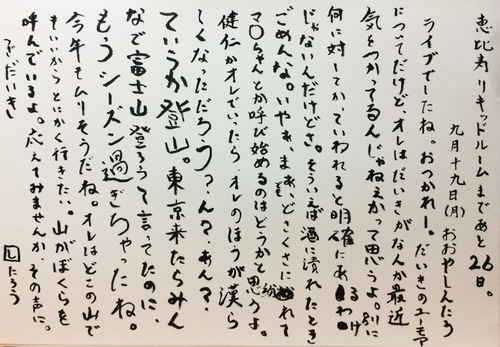 恵比寿リキッドルームまであと26日。
九月十九日(月) おおやしんたろう
ライブでしたね。おつかれー。だいきのユーモア
についてだけど、オレはだいきがなんか最近
気をつかってるんじゃねぇかって思うよ。別に
何に対してか、ていわれると明確にあるわけ
じゃないんだけどさ。そういえば酒に潰れたとき
ごめんな。いやぁ、まぁ、どさくさに紛れて
マ〇ちゃんとか呼び始めるのはどうかと思うよ。
健仁がオレでいったら、オレのほうが漢ら
しくなっただろう?ん?、あん?、
ていうか登山。東京来たらみん
なで富士山登ろうって言ってたのに、
もうシーズン過ぎちゃったね。
今年もムリそうだね。オレはどこの山で
もいいからとにかく行きたい。山がぼくらを
呼んでいるよ。応えてみませんか、その声に。
だいき
たろう